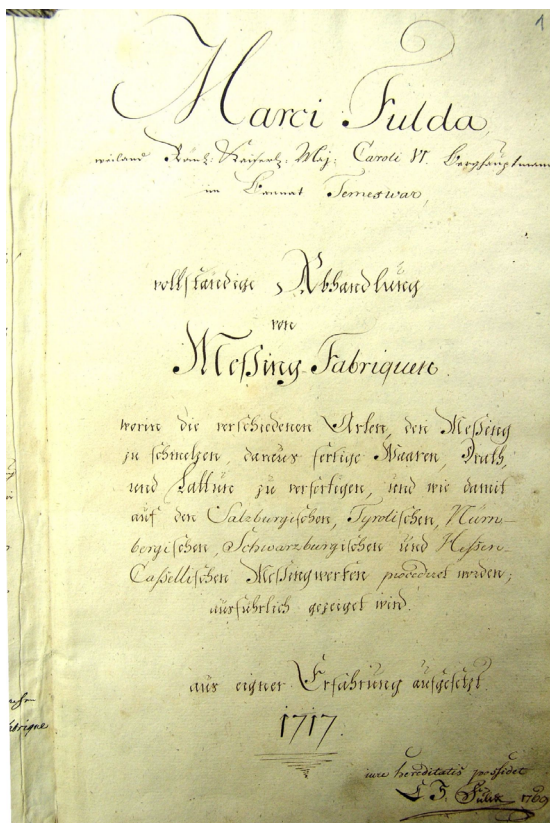 1
Marci Fulda,
weiland Röm: Kaiserl: Maj: Caroli VI. Berghauptmann
im Bannat Temeswar,
vollständige Abhandlung
von
Meßing-Fabriquen.
worin die verschiedenen Arten, den Meßing
zu schmelzen, daraus fertige Waaren, Drath,
und Lattun zu verfertigen, und wie damit
auf den Salzburgischen, Tyrolischen, Nürn-
bergischen, Schwarzburgischen und Hessen-
Caßellischen Meßingwerken procediret worden;
ausführlich gezeiget wird.
aus eigner Erfahrung aufgesetzt
1717.
iure hereditatis possidet
1769